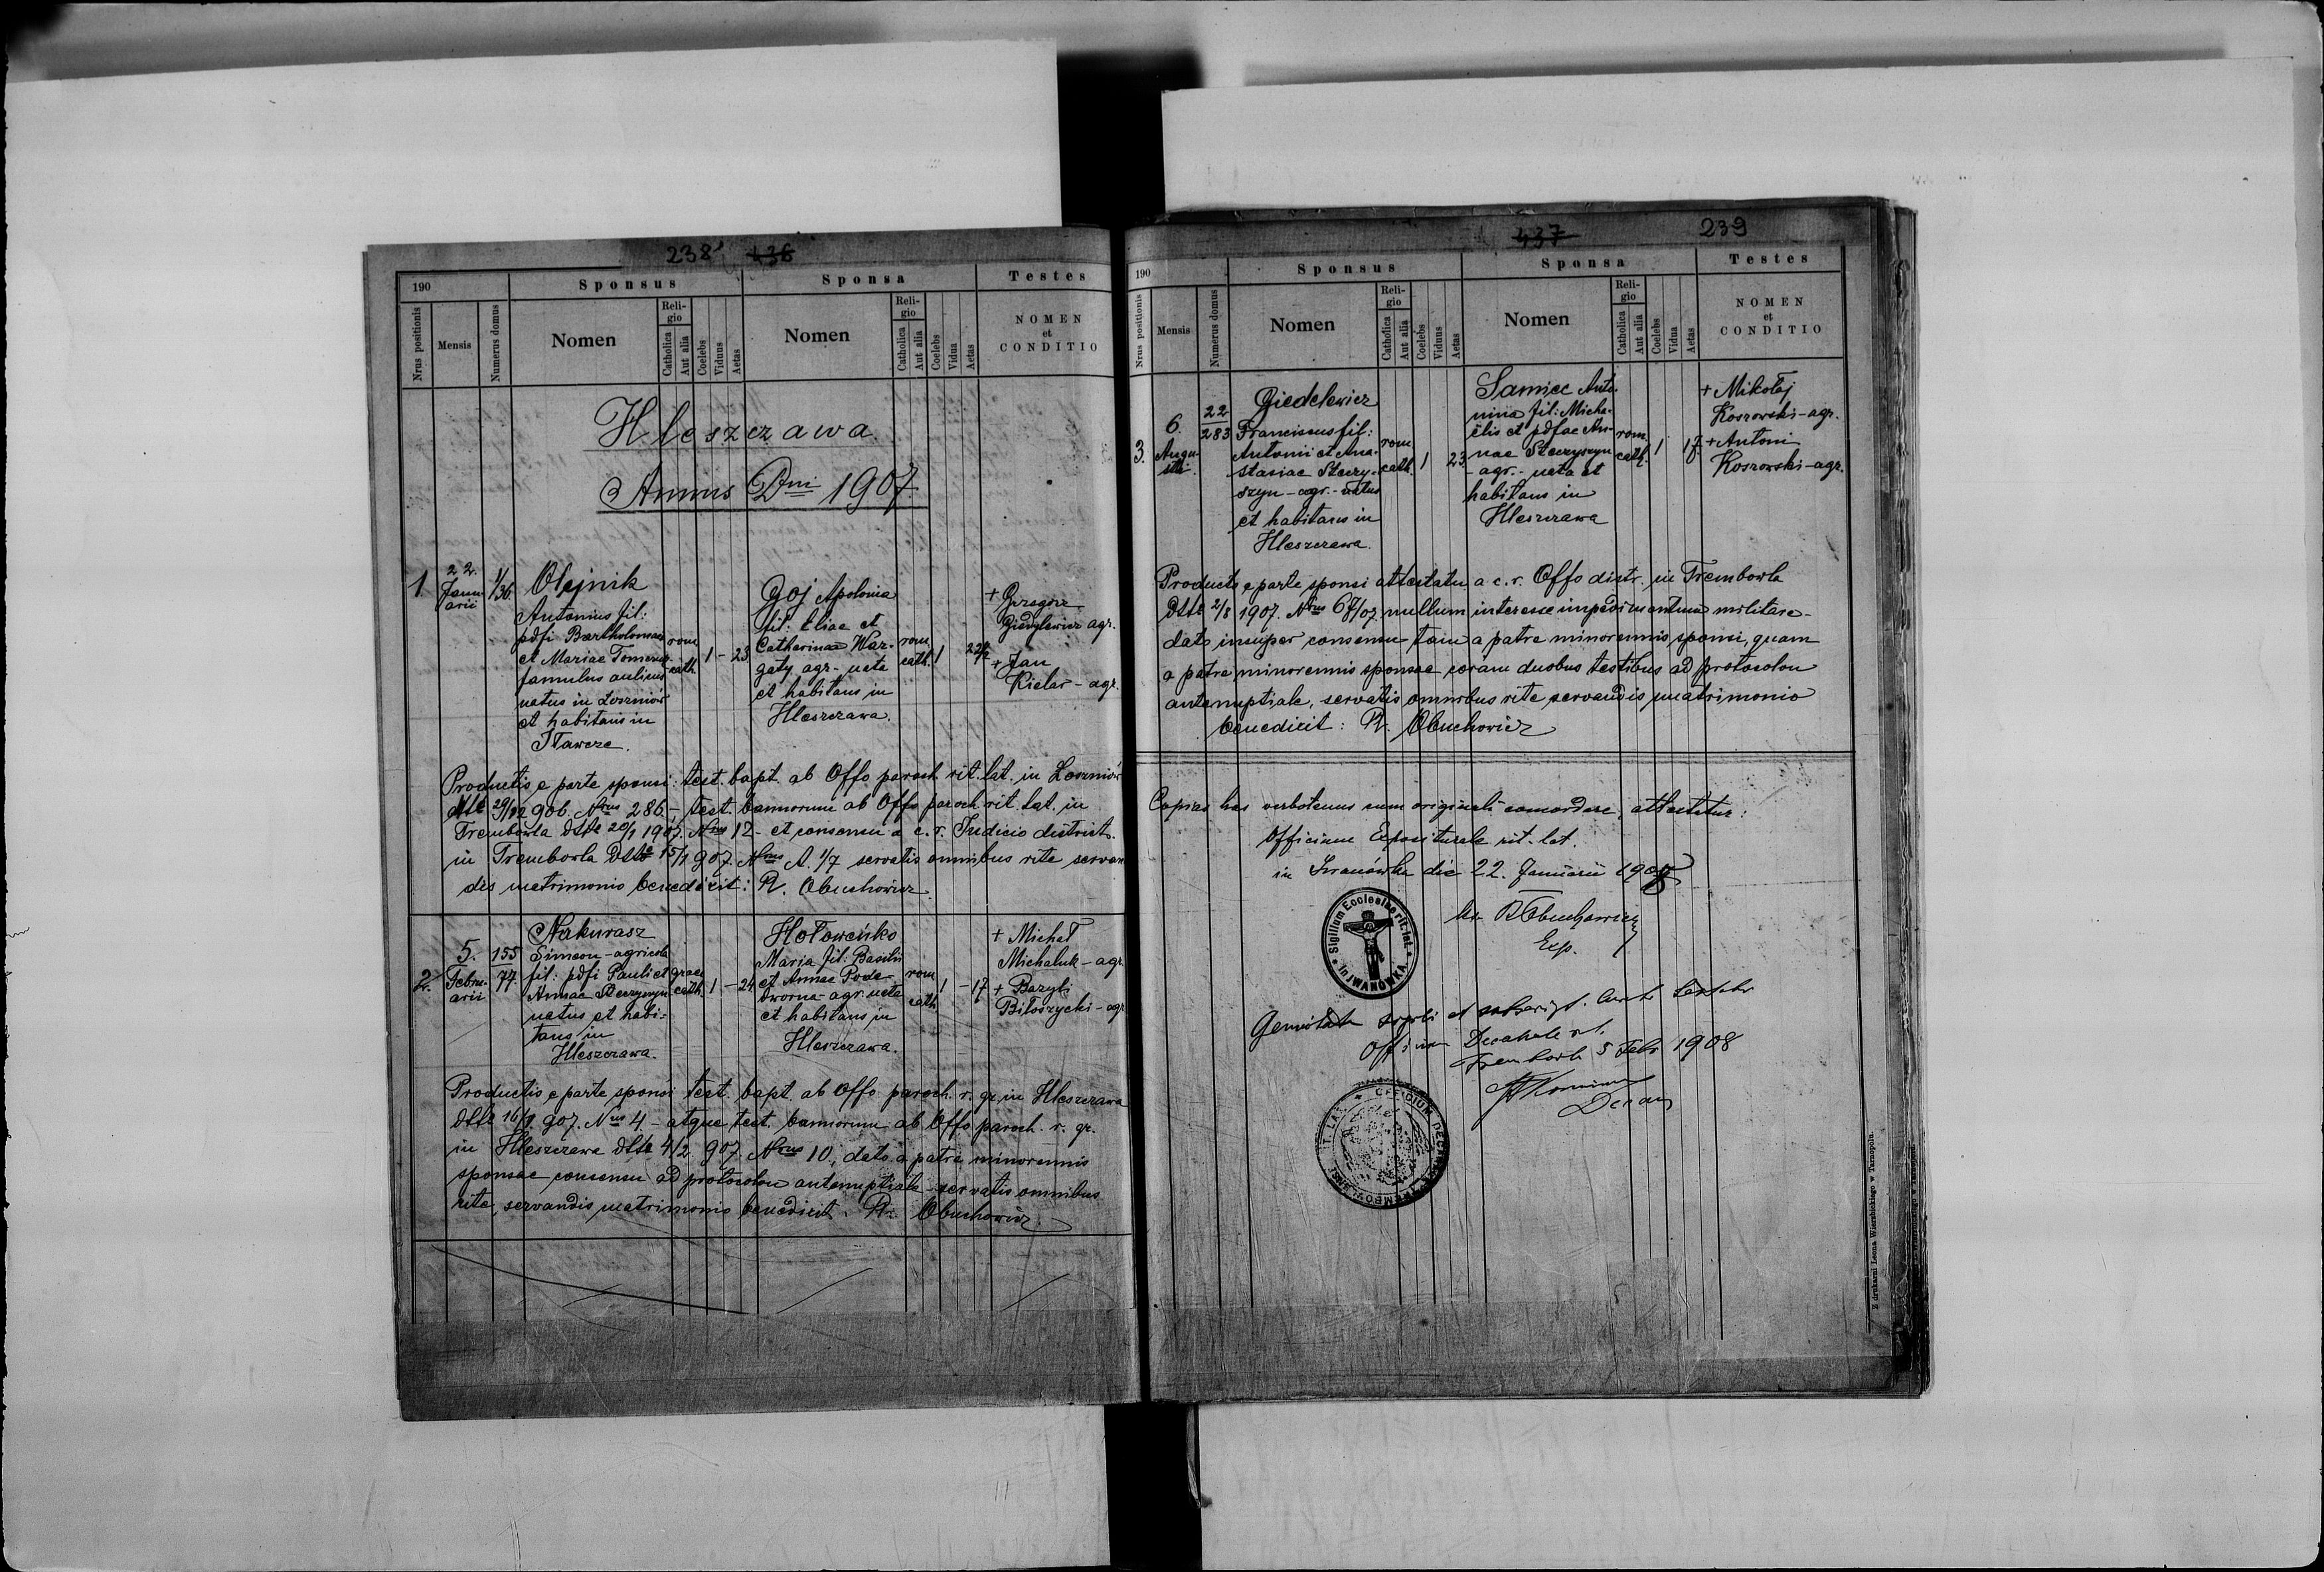 238 436
190
Sponsus
Sponsa
Testes
Nrus positionis
Mensis
Numerus domus
Nomen
Religio
Catholica
Aut alia
Coelebs
Viduus
Aetas
Nomen
Religio
Catholica
Aut alia
Coelebs
Vidua
Aetas
NOMEN
et
CONDITIO
Hleszczawa.
Annus Dni 1907.
1
22.
Janu-
arii
1/36
Olejnik
Antonius fil:
pdfi Bartholomaei
et Mariae
famulus aulicus
natus in Łoszniów
et habitans in
Iławcze.
rom
cath.
1 - 23
Goj Apolonia
fil: Eliae et
Catharinae War-
gaty agr.- nata
et habitans in
Hleszczawa.
rom
cath.
1
22 1/2
+ Grzegorz
Giedylewicz agr.
+ Jan
Kielar - agr.
Productis e parte sponsi: test. bapt. ab Offo paroch. rit. lat. in Łoszniów
dtte 29/12 906. Nrus 286-, test. bannorum ab Offo paroch. rit. lat. in
Trembowla dtte 20/1 1907. Nrus 12 - et consensu a c. r. Iudicio district.
in Trembowla dtte 15/1 907. Nrus A. 1/7 servatis omnibus rite servan
dis matrimonio benedixit: R. Obuchowicz
2.
5.
Febru-
arii
155
77.
Nakurasz
Simeon - agricola
fil: pdfi Pauli et
Annae Steczyszyn
natus et habi-
tans in
Hleszczawa.
graec
cath.
1 - 24
Hołoweńko
Maria fil: Basilii
et Annae Pode-
dworna - agr. nata
et habitans in
Hleszczawa.
rom
cath
1 - 17
+ Michał
Michaluk - agr
+ Bazyli
Biłoszycki - agr
Productis e parte sponsi test. bapt. ab Offo paroch. r. gr. in Hleszczawa
dtte 16/1 907. Nrus 4 - atque test. bannorum ab Offo paroch. r. gr.
in Hleszczawa dtte 4/2 907 Nrus 10, dato a patre minorennis
sponsae consensu ad protocolon antenuptiale servatis omnibus
rite, servandis matrimonio benedixit. R. Obuchowicz
437 239
190
Sponsus
Sponsa
Testes
Nrus positionis
Mensis
Numerus domus
Nomen
Religio
Catholica
Aut alia
Coelebs
Viduus
Aetas
Nomen
Religio
Catholica
Aut alia
Coelebs
Vidua
Aetas
NOMEN
et
CONDITIO
3.
6.
Augu-
sti.
22
283
Giedelewicz
Franciscus fil:
Antonii et Ana-
stasiae Steczy-
szyn - agr. - natus
et habitans in
Hleszczawa.
rom
cath.
1 23
Samiec Anto-
nina fil: Micha-
ëlis et pdfae An-
nae Steczyszyn
- agr. - nata et
habitans in
Hleszczawa
rom.
cath.
1 17.
+ Mikołaj
Koszowski - agr.
+ Antoni
Koszowski - agr.
Producto e parte sponsi attestatu a c. r. Offo distr. in Trembowla
dtte 2/8 1907. Nrus 67/07 nullum interesse impedimentum militare -
dato insuper consensu tam a patre minorennis sponsi, quam
a patre minorennis sponsae coram duobus testibus ad protocolon
antenuptiale, servatis omnibus rite servandis matrimonio
benedixit: R. Obuchowicz
Copias has verbotenus cum originali concordare, attestatur:
Officium Expositurale rit. lat.
in Iwanówka die 22. Januarii 1908
R Obuchowicz
Exp.
Sigillum Ecclesiae rit. lat.
in IWANÓWKA.
Officium Decanale r. l.
Trembowla 5 Febr 1908
Decan
OFFICIUM DECANALE TREMBOWLENSE RIT. LAT.
Z drukarni Leona Wierzbickiego w Tarnopolu.